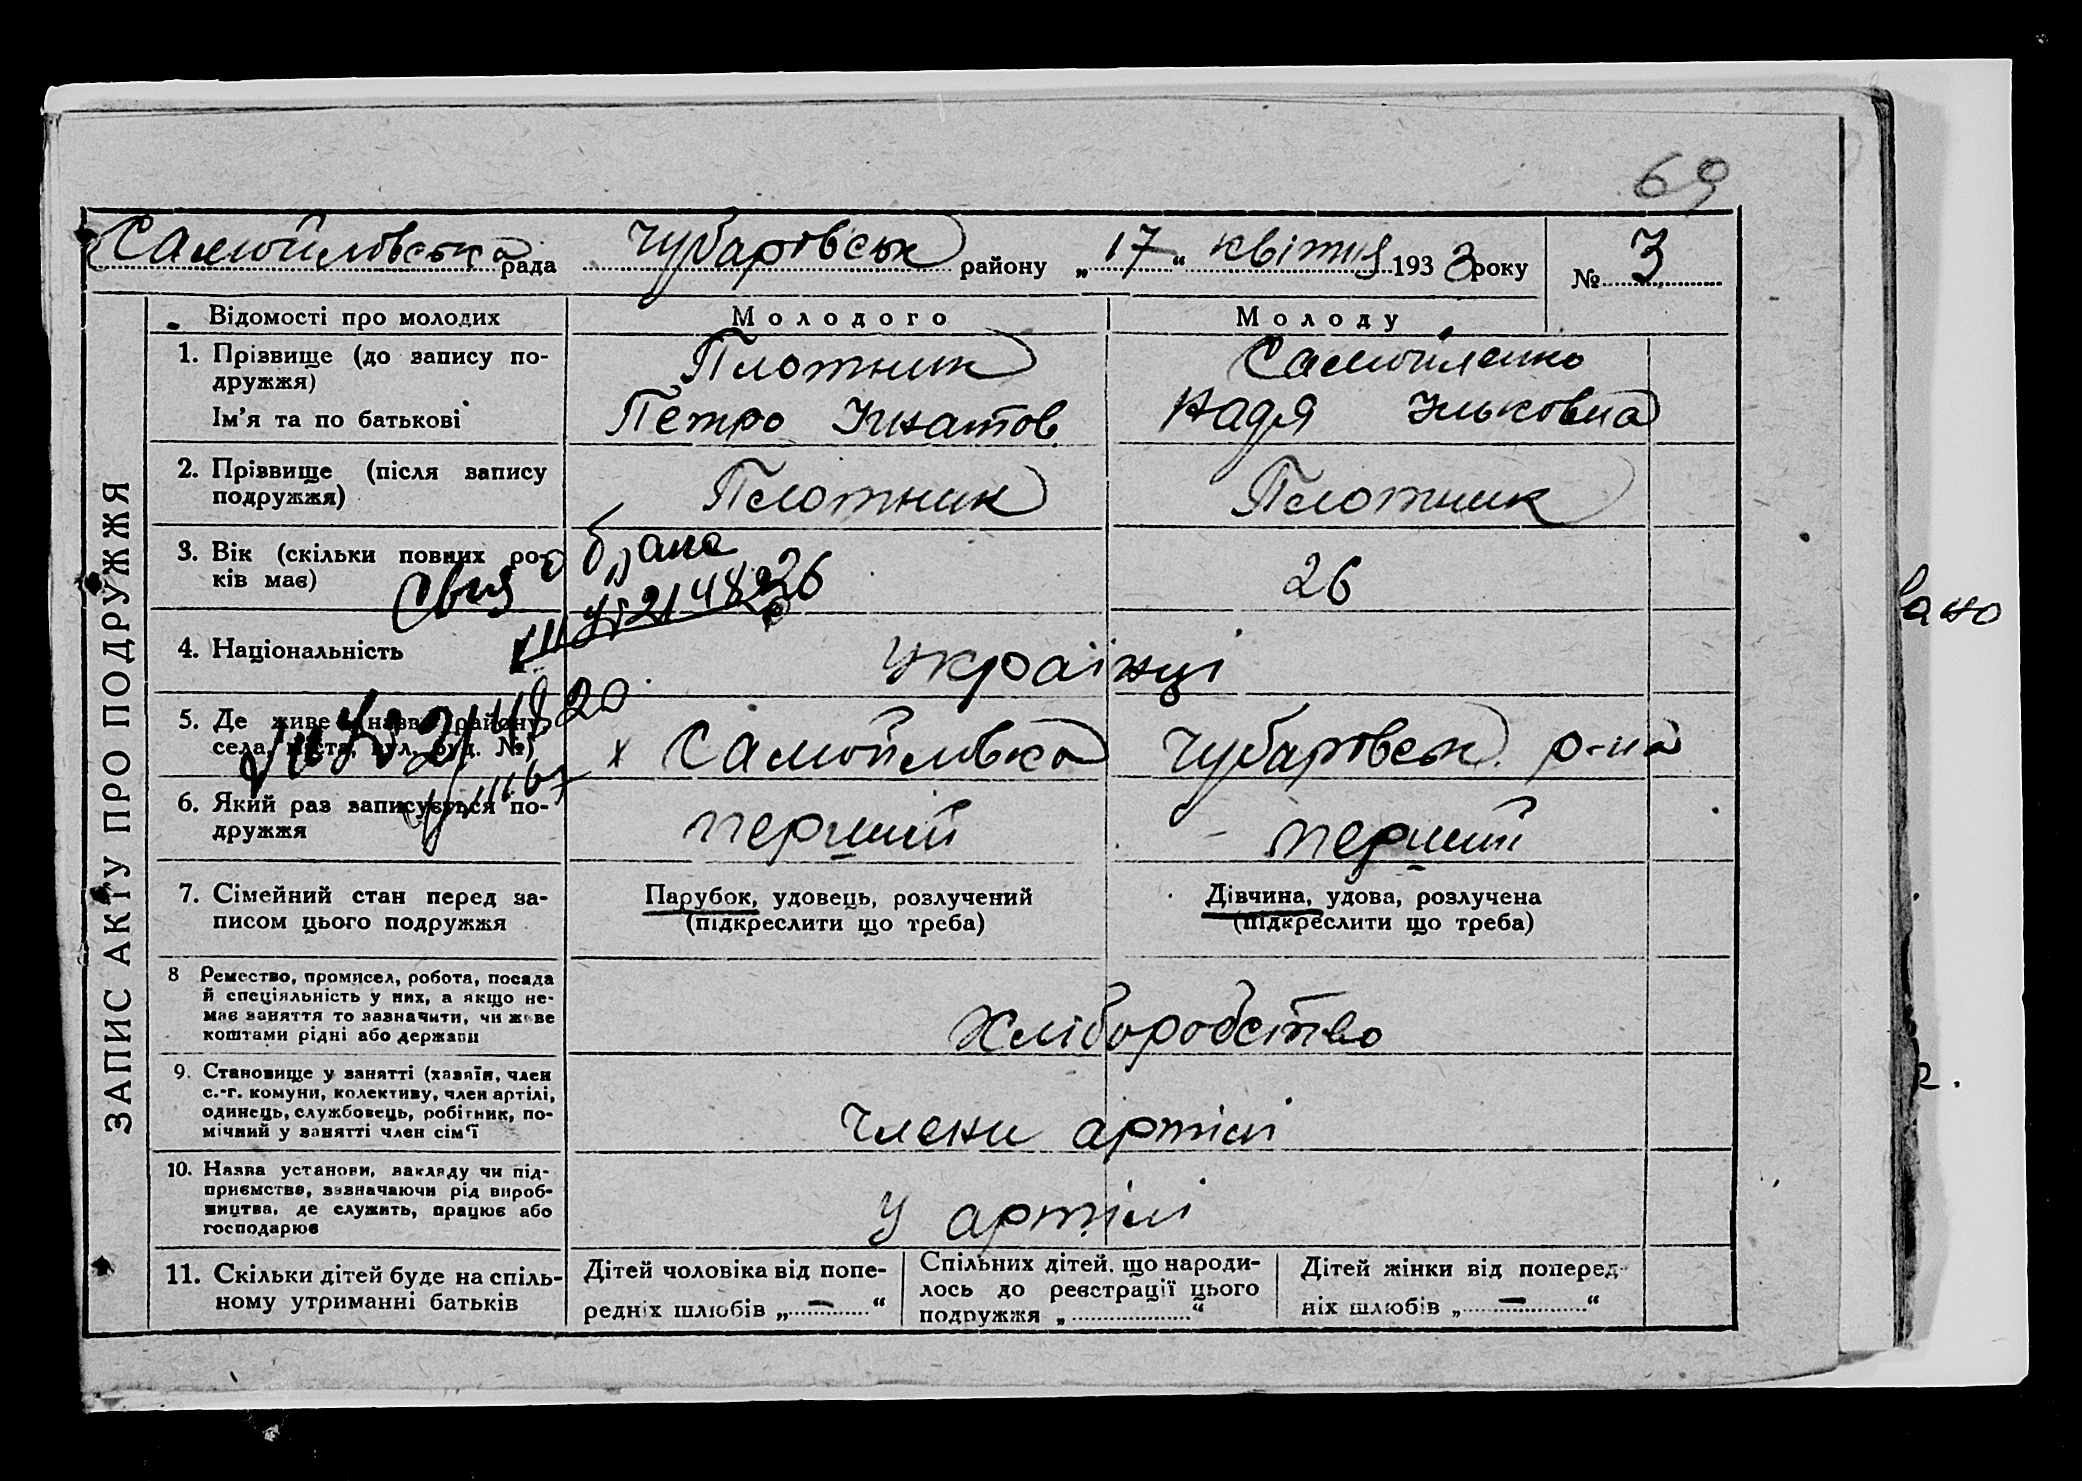 69
Самойловська рада Чубарівськ району „17“ квітня 1933 року № 3
ЗАПИС АКТУ ПРО ПОДРУЖЖЯ
Відомості про молодих
Молодого
Молоду
1. Прізвище (до запису по-
дружжя)
Плотник
Самойленко
Ім'я та по батькові
Петро Ігнатов
Надя Ільковна
2. Прізвище (після запису
подружжя)
Плотник
Плотник
3. Вік (скільки повних ро-
ків має)
26
26
4. Національність
Українці
5. Де живе (назва району,
села, міста, вул. буд. №)
х Самойловка Чубарівськ. р-на
6. Який раз записується по-
дружжя
перший
перший
7. Сімейний стан перед за-
писом цього подружжя
Парубок, удовець, розлучений
(підкреслити що треба)
Дівчина, удова, розлучена
(підкреслити що треба)
8 Ремество, промисел, робота, посада
й спеціяльність у них, а якщо не-
має заняття то зазначити, чи живе
коштами рідні або держави
Хліборобство
9. Становище у занятті (хазяїн, член
с.-г. комуни, колективу, член артілі,
одинець, службовець, робітник, по-
мічний у занятті член сім'ї
Члени артілі
10. Назва установи, закладу чи під-
приємства, зазначаючи рід вироб-
ництва, де служить, працює або
господарює
У артілі
11. Скільки дітей буде на спіль-
ному утриманні батьків
Дітей чоловіка від попе-
редніх шлюбів „ — “
Спільних дітей, що народи-
лось до реєстрації цього
подружжя „ “
Дітей жінки від поперед-
ніх шлюбів „ — “